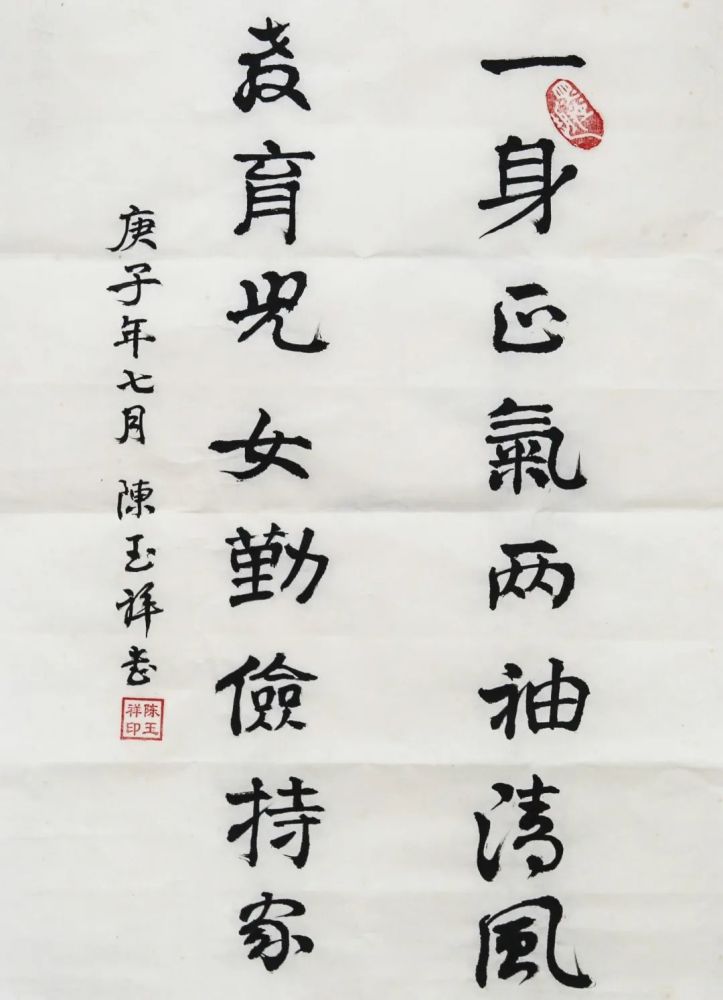 一身正氣两袖清風
教育兒女勤儉持家
庚子年七月 陳玉祥书
陈玉祥印